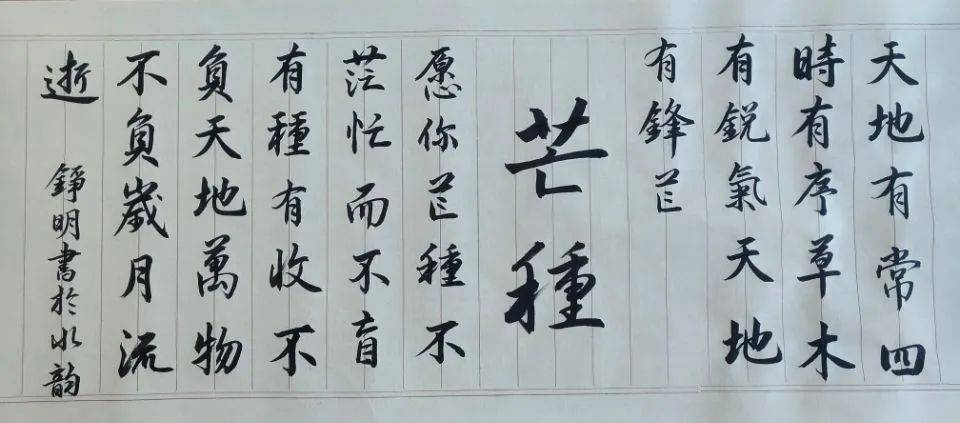 天地有常四
時有序草木
有鋭氣天地
有鋒芒
芒種
愿你芒種不
茫忙而不盲
有種有收不
負天地萬物
不負歲月流
逝
錚明書於水韵